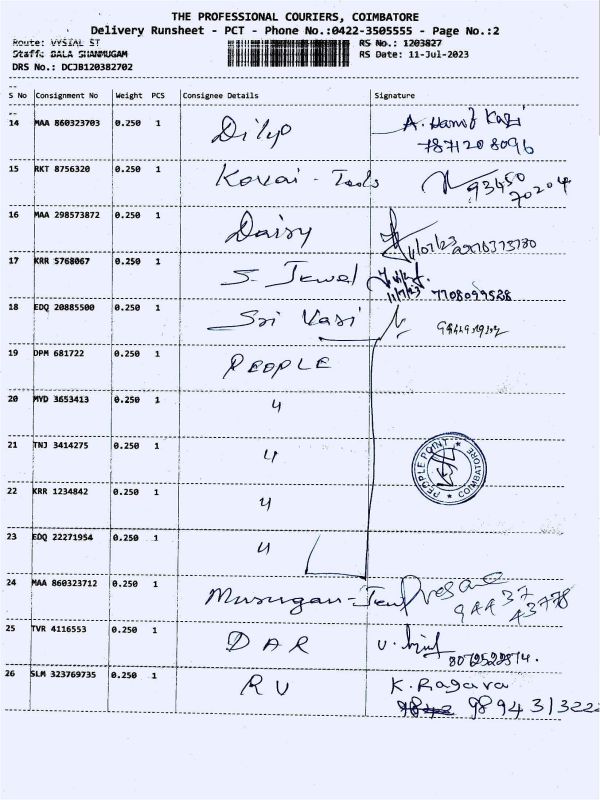 THE PROFESSIONAL COURIERS, COIMBATORE
Delivery Runsheet - PCT - Phone No.:0422-3505555 - Page No.:2
Route: VYSIAL ST
RS No.: 1203827
Staff: BALA SHANMUGAM
RS Date: 11-Jul-2023
DRS No.: DCJB120382702
S No Consignment No Weight PCS Consignee Details Signature
14 MAA 860323703 0.250 1 Dilip A. Hanif Kazi
7871208096
15 RKT 8756320 0.250 1 Kovai - Tools 93450
70204
16 MAA 298573872 0.250 1 Daisy 11/07/23
17 KRR 5768067 0.250 1 S. Jewel 11/7/23 7708099528
18 EDQ 20885500 0.250 1 Sri Kasi
19 DPM 681722 0.250 1 PEOPLE
20 MYD 3653413 0.250 1 "
21 TNJ 3414275 0.250 1 "
PEOPLE POINT ★ COIMBATORE ★
22 KRR 1234842 0.250 1 "
23 EDQ 22271954 0.250 1 "
24 MAA 860323712 0.250 1 Murugan - Jewel
94437
43778
25 TVR 4116553 0.250 1 DAR
26 SLM 323769735 0.250 1 RU K. Ragava
9894313222